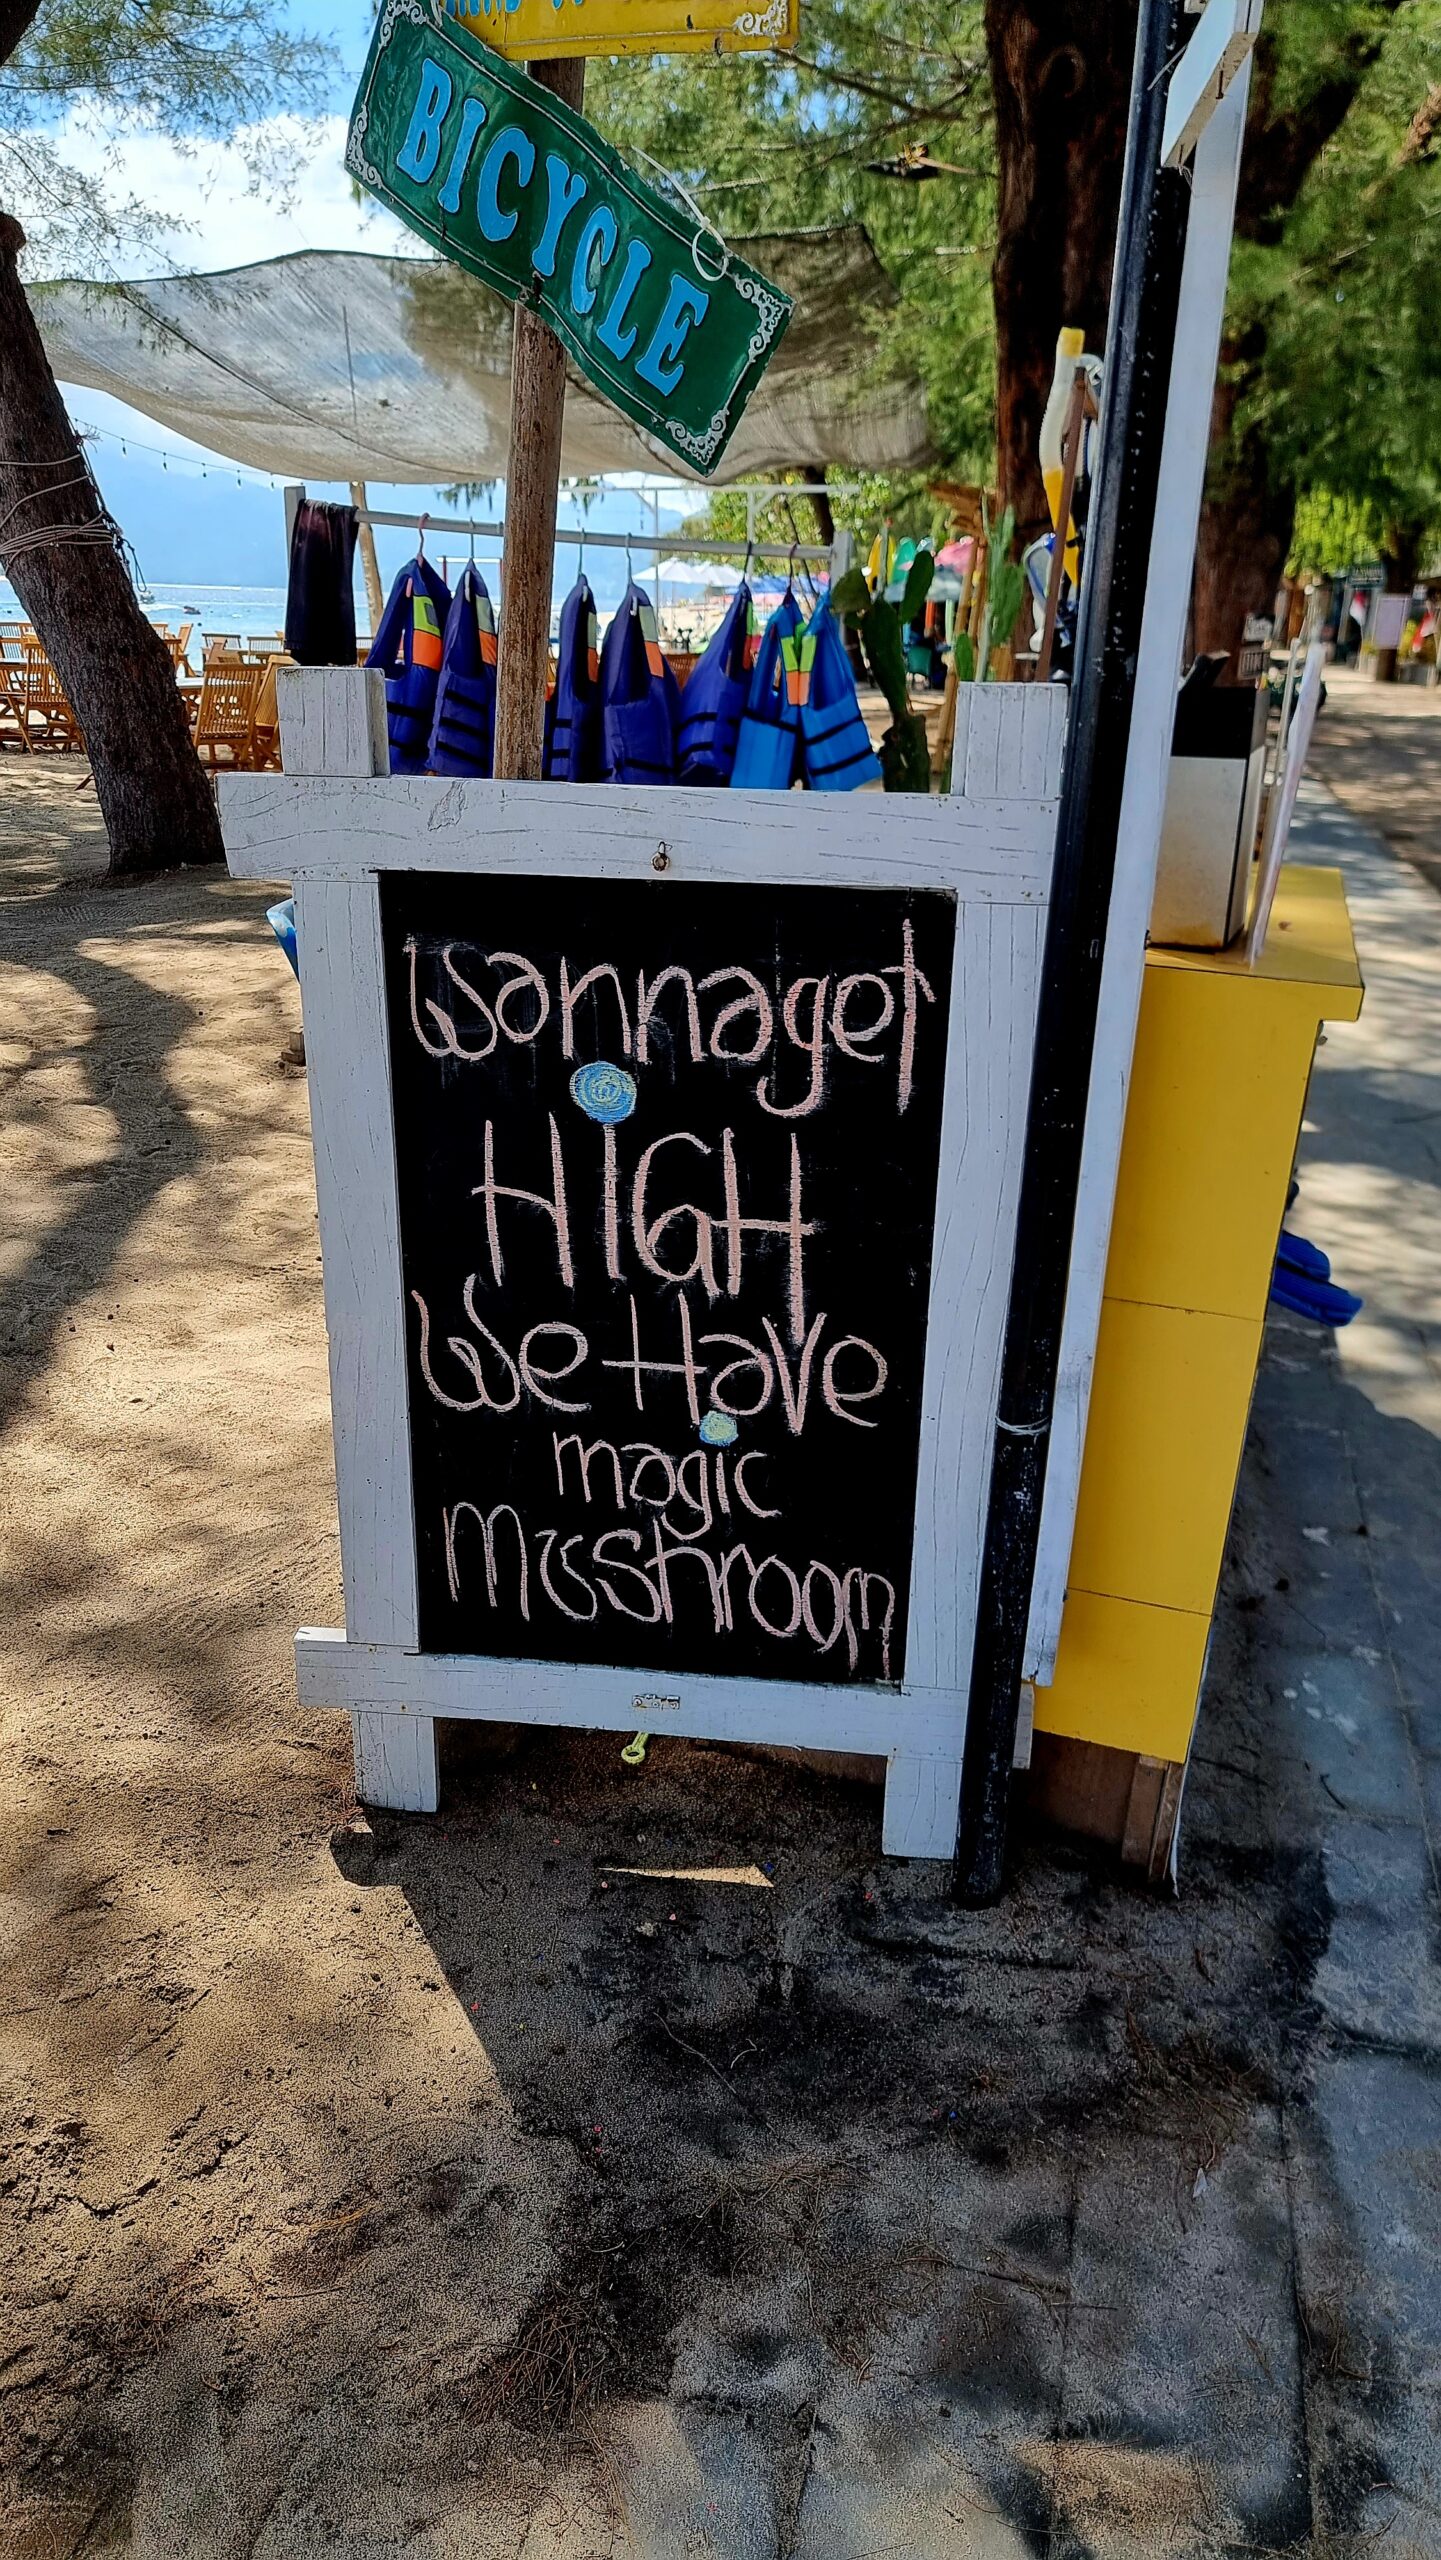 BICYCLE
Wanna get
HIGH
We Have
magic
Mushroom